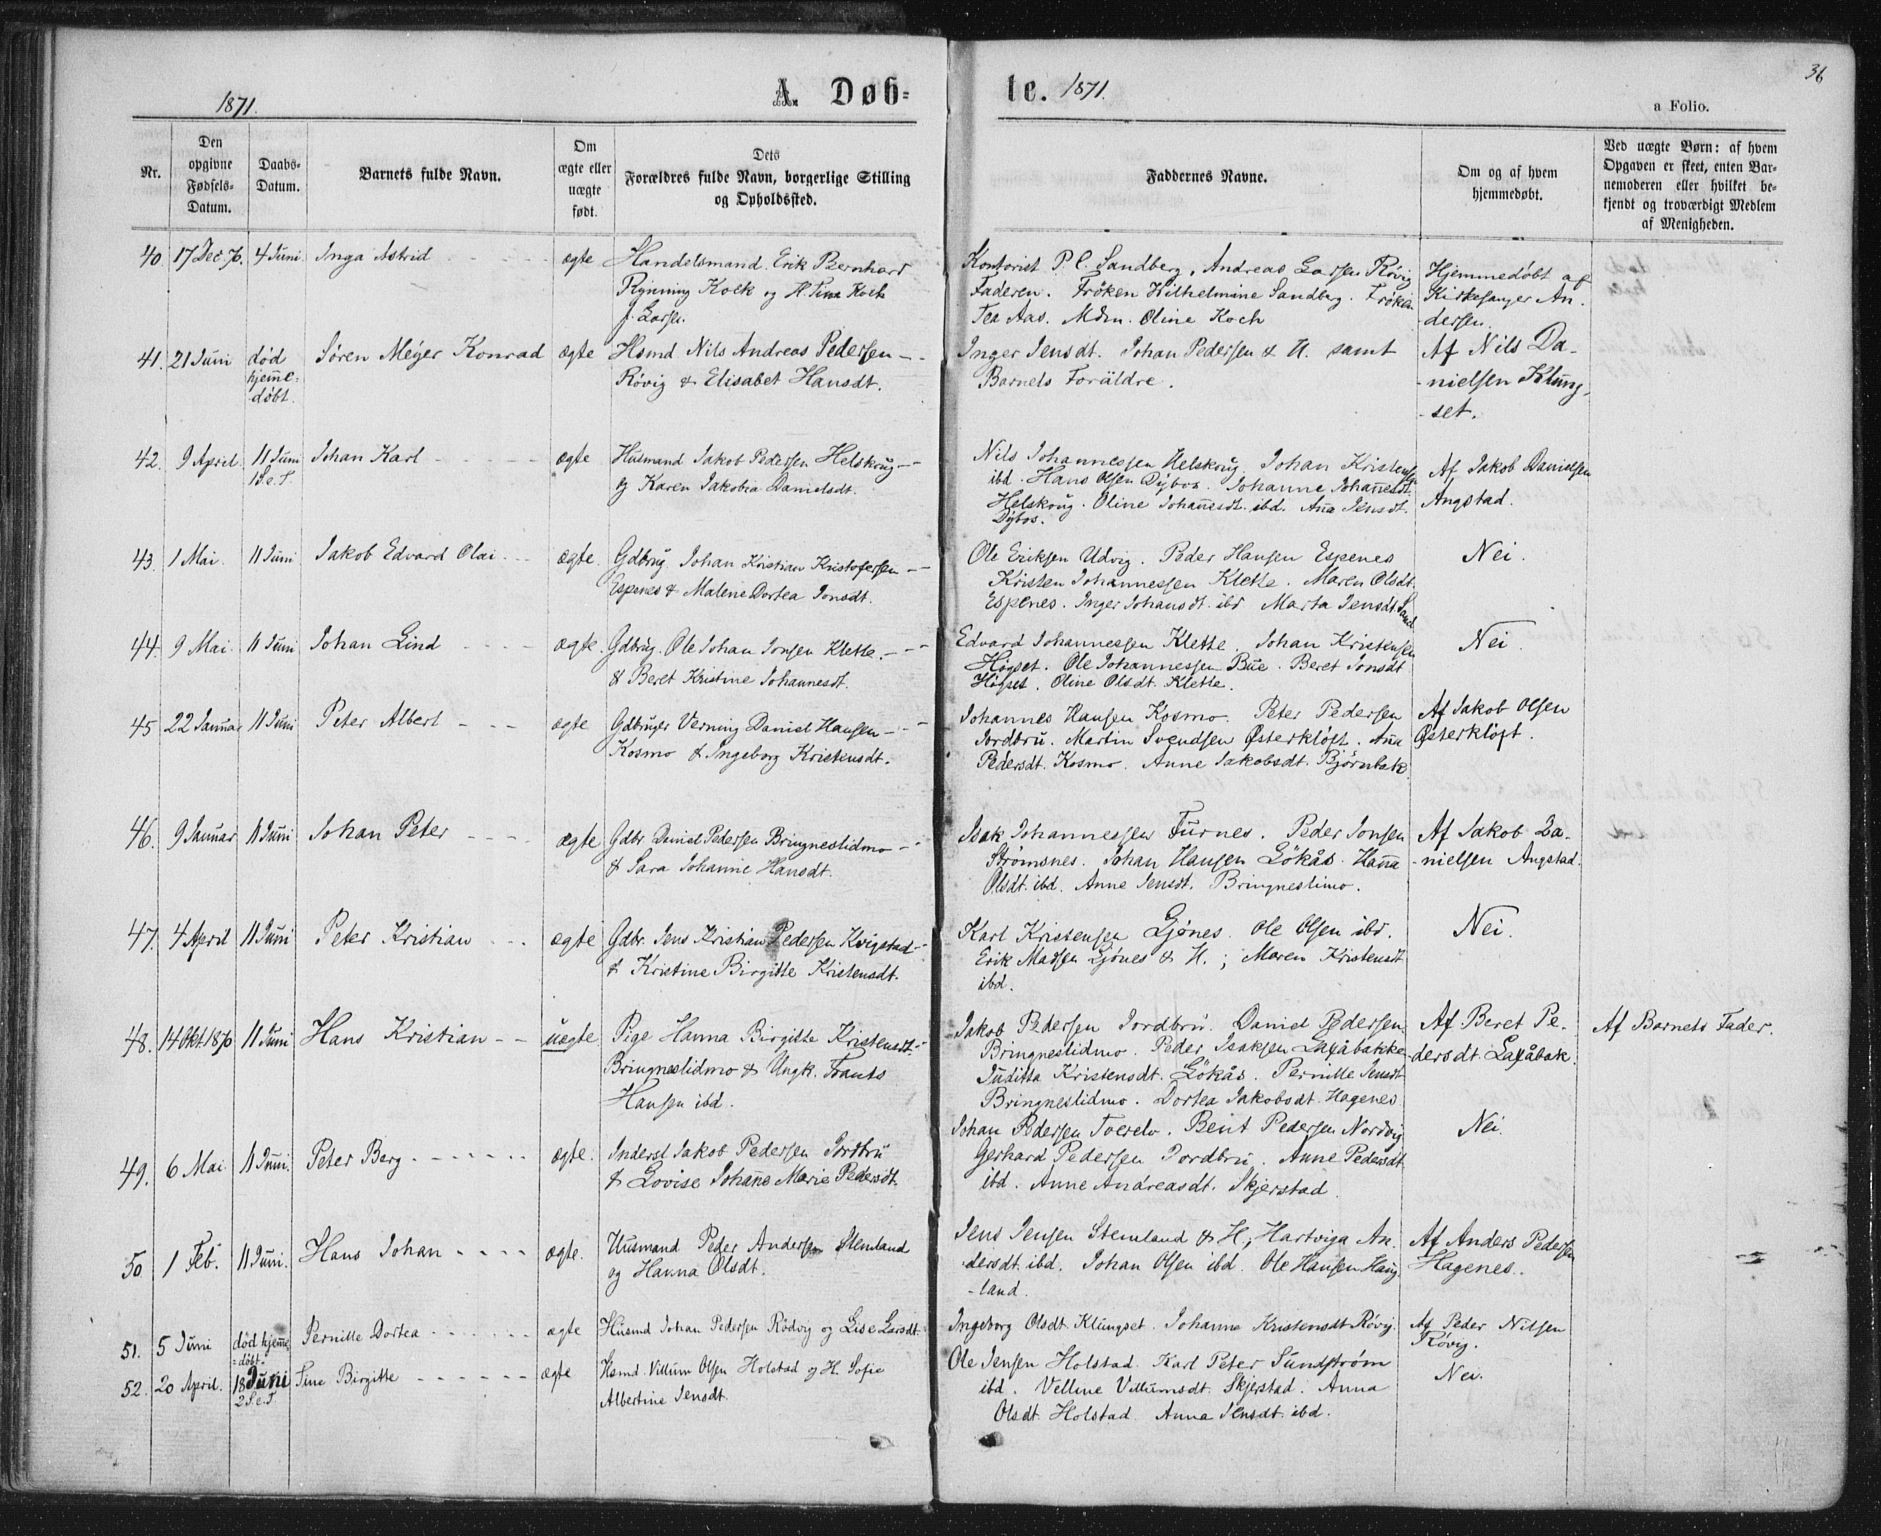 1871.
A. Døb=
te.
1871.
36
a Folio.
Nr.
Den opgivne Fødsels-Datum.
Daabs-Datum.
Barnets fulde Navn.
Om ægte eller uægte født.
Dets Forældres fulde Navn, borgerlige Stilling og Opholdssted.
Faddernes Navne.
Om og af hvem hjemmedøbt.
Ved uægte Børn: af hvem Opgaven er skeet, enten Barnemoderen eller hvilket bekjendt og troværdigt Medlem af Menigheden.
40. 17 Dec. 70. 4 Juni Inga Astrid ægte Handelsmand Erik Bernhard
Rynning Koch og H. Tina Koch
f. Larsen.
Kontorist P. C. Sandberg, Andreas Larsen Røvig
Faderen. Frøken Wilhelmine Sandberg. Frøken
Tea Aas. Mdm. Oline Koch
Hjemmedøbt af
Kirkesanger An-
dersen.
41. 21 Juni død
hjemme-
døbt.
Søren Meyer Konrad ægte Hsmd Nils Andreas Pedersen
Røvig & Elisabet Hansdt.
Inger Jensdt. Johan Pedersen & H. samt
Barnets Forældre.
Af Nils Da-
-nielsen Klung-
-set.
42. 9 April. 11 Juni
1 S. e. T.
Johan Karl ægte Husmand Jakob Pedersen Helskoug
og Karen Jakobea Danielsdt.
Nils Johannessen Helskoug. Johan Kristensen
ibd. Hans Olsen Dybos. Johanne Johannesdt
Helskoug. Oline Johannesdt. ibd. Ana Jensdt.
Dybos.
Af Jakob Danielsen
Angstad.
43. 1 Mai 11 Juni Jakob Edvard Olai ægte Gdbrug. Johan Kristian Kristofersen
Espenes & Malene Dortea Jonsdt.
Ole Eriksen Udvig. Peder Hansen Espenes
Kristen Johannessen Klette. Maren Olsdt.
Espenes. Inger Johansdt. ibd Marta Jensdt Sand
Nei.
44. 9 Mai 11 Juni Johan Lind ægte Gdbrug. Ole Johan Jonsen Klette.
& Beret Kristine Johannesdt.
Edvard Johannessen Klette. Johan Kristensen
Høgset. Ole Johannessen Bue. Beret Jonsdt
Høgset. Oline Olsdt. Klette.
Nei.
45 22 Januar 11 Juni Peter Albert ægte Gdbruger Verning Daniel Hansen
Kosmo & Ingeborg Kristensdt.
Johannes Hansen Kosmo. Peter Pedersen
Jordbru. Martin Svendsen Østerkløft. Ana
Pedersdt. Kosmo. Anne Jakobsdt. Bjørnbak
Af Jakob Olsen
Østerkløft.
46. 9 Januar 11 Juni Johan Peter ægte Gdbr Daniel Pedersen Bringneslidmo
& Sara Johanne Hansdt.
Isak Johannessen Furnes. Peder Jonsen
Strømsnes. Johan Hansen Løkås. Hanna
Olsdt. ibd. Anne Jensdt. Bringneslimo.
Af Jakob Da-
-nielsen Angstad.
47. 4 April 11 Juni Peter Kristian ægte Gdbr. Jens Kristian Pedersen Kvigstad
& Kristine Birgitte Kristensdt.
Karl Kristensen Ljønes. Ole Olsen ibd.
Erik Madsen Ljønes & H.; Maren Kristensdt
ibd.
Nei.
48. 14 Okt. 1870 11 Juni Hans Kristian uægte Pige Hanna Birgitte Kristensdt.
Bringneslidmo & Ungk. Frants
Hansen ibd.
Jakob Pedersen Jordbru. Daniel Pedersen
Bringneslidmo. Peder Isaksen Laxåbakke
Juditta Kristensdt. Løkås. Pernille Jensdt
Bringneslidmo. Dortea Jakobsdt. Hagenes
Af Beret Pe-
dersdt. Laxåbak.
Af Barnets Fader.
49. 6 Mai 11 Juni. Peter Berg ægte. Inderst Jakob Pedersen Jordbru
& Lovise Johane Marie Pedersdt.
Johan Pedersen Tverelv. Bent Pedersen Nordvig
Gerhard Pedersen Jordbru. Anne Pedersdt
ibd. Anne Andreasdt. Skjerstad.
Nei.
50 1 Feb. 11 Juni. Hans Johan ægte. Husmand Peder Andersen Stemland
og Hanna Olsdt.
Jens Jensen Stemland & H; Hartviga An-
dersdt. ibd. Johan Olsen ibd. Ole Hansen Haug-
-land.
Af Anders Pedersen
Hagenes.
51. 5 Juni død hjemme-
døbt.
Pernille Dortea ægte Husmd Johan Pedersen Rødvig og Lise Larsdt.
Ingeborg Olsdt. Klungset. Johanna Kristensdt Røvig.
Af Peder Nilsen
Røvig.
52. 20 April. 18 Juni
2 S. e. T
Sine Birgitte ægte Hsmd. Villum Olsen Holstad og H. Sofie
Albertine Jensdt.
Ole Jensen Holstad. Karl Peter Sundstrøm
ibd. Velline Villumsdt. Skjerstad. Anna
Olsdt. Holstad. Anna Jensdt. ibd.
Nei.